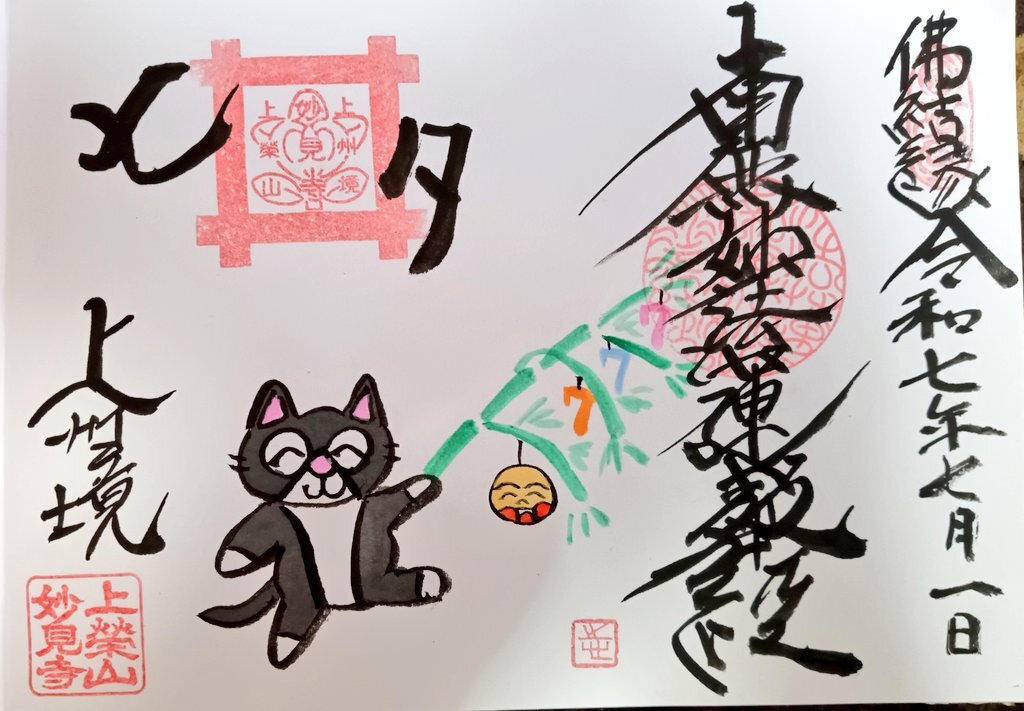 佛結縁 令和七年七月一日
南無妙法蓮華經
七夕
妙見寺
上州境
上榮山
7
7
7
上州境
上榮山
妙見寺